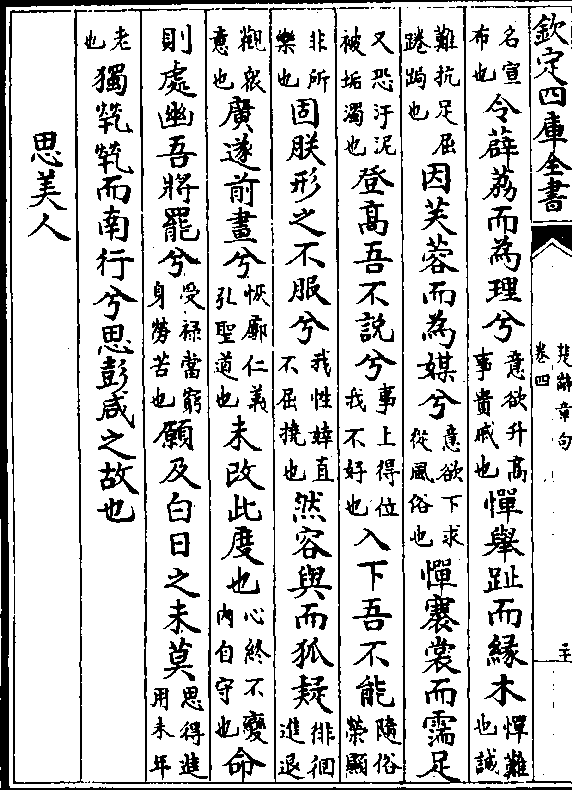 欽定四庫全書
楚辭章句
卷四
名宣布也令薜荔而為理兮意欲升髙事貴戚也憚舉趾而縁木憚難也誠
難抗足屈踡跼也因芙蓉而為媒兮意欲下求從風俗也憚褰裳而濡足
又恐汙泥被垢濁也登髙吾不說兮事上得位我不好也入下吾不能隨俗榮顯
非所樂也固朕形之不服兮我性婞直不屈撓也然容與而狐疑徘徊進退
觀衆意也廣遂前畫兮恢廓仁義弘聖道也未改此度也心終不變内自守也命
則處幽吾將罷兮受禄當窮身勞苦也願及白日之未莫思得進用未年
老也獨煢煢而南行兮思彭咸之故也
思美人